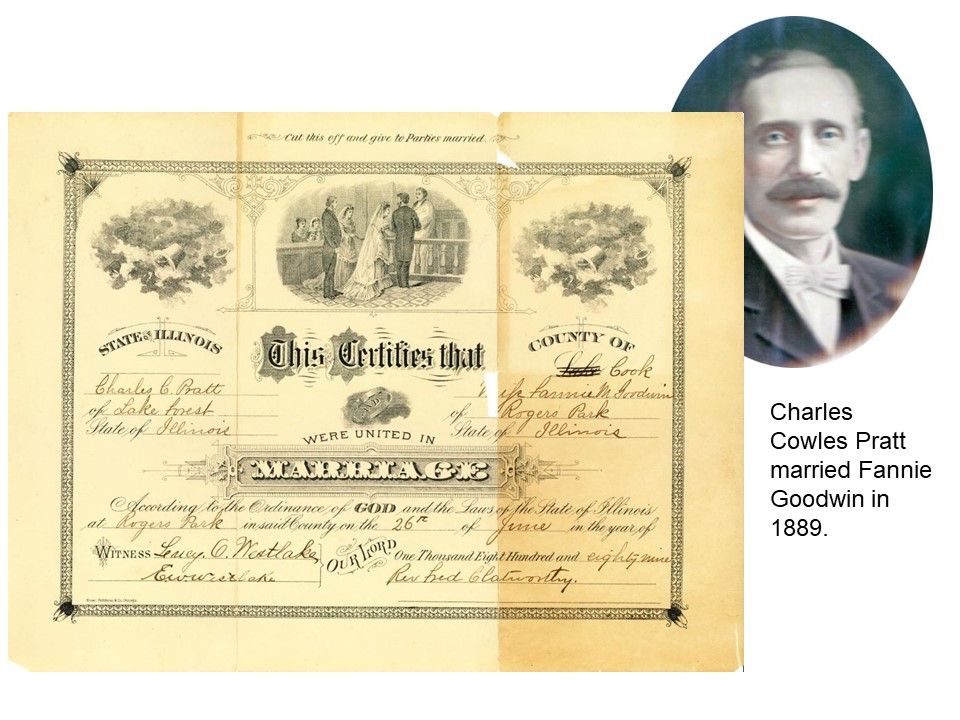 Cut this off and give to Parties married.
STATE OF ILLINOIS
COUNTY OF
This Certifies that
Lake Cook
Charles C. Pratt
Miss Fannie M. Goodwin
of Lake Forest
AND
of Rogers Park
State of Illinois
State of Illinois
WERE UNITED IN
MARRIAGE
According to the Ordinance of GOD and the Laws of the State of Illinois
at Rogers Park in said County on the 26th of June in the year of
WITNESS Lucy O. Westlake
OUR LORD One Thousand Eight Hundred and eighty nine
E W Westlake
Rev Fred Clatworthy.
Charles
Cowles Pratt
married Fannie
Goodwin in
1889.